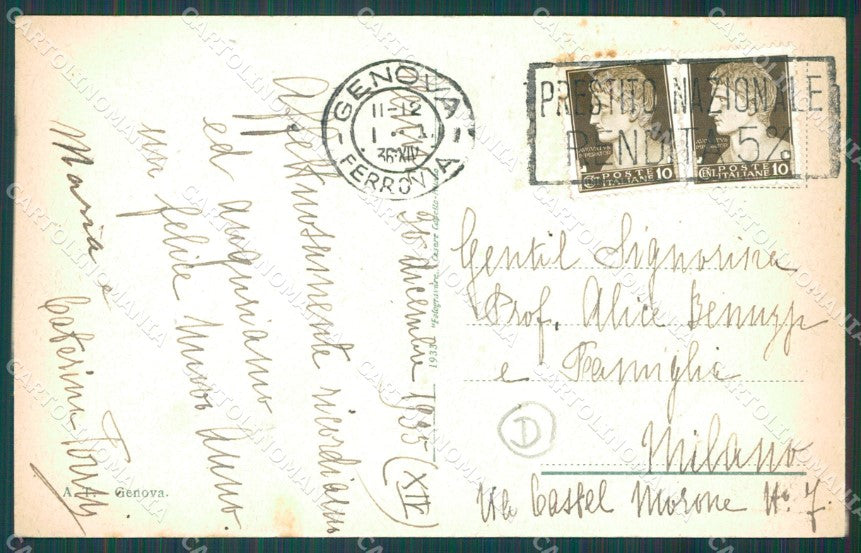 30 dicembre 1935 (XIV)
Affettuosamente ricordiamo
ed auguriamo
un felice nuovo Anno.
Maria e
Caterina
A. T. Genova.
1933
GENOVA
11-12
36 XIV
FERROVIA
PRESTITO NAZIONALE
RENDITA 5%
POSTE
ITALIANE
10
POSTE
ITALIANE
10
Gentil Signorina
Prof. Alice
e Famiglia
Milano
Via Castel Morone N. 7.
D
CARTOLINOMANIA